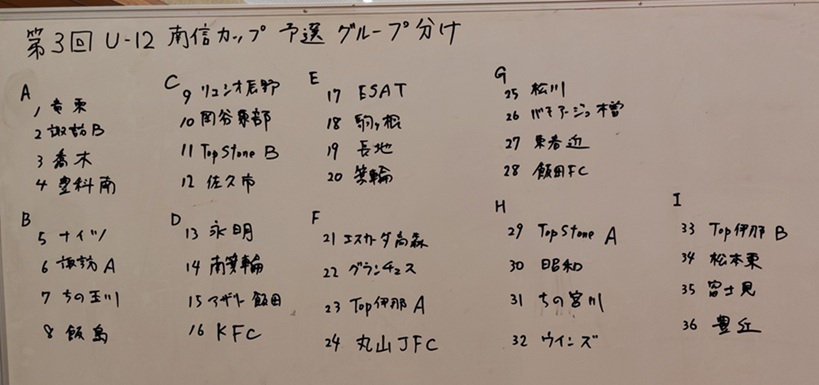 第3回 U-12 南信カップ 予選 グループ分け
A
1 竜東
2 諏訪B
3 喬木
4 豊科南
B
5 ナイツ
6 諏訪A
7 ちの玉川
8 飯島
C
9 リュシオ辰野
10 岡谷東部
11 TopStone B
12 佐久市
D
13 永明
14 南箕輪
15 アザート飯田
16 KFC
E
17 ESAT
18 駒ヶ根
19 長地
20 箕輪
F
21 エスカーダ高森
22 グランチェス
23 Top伊那 A
24 丸山JFC
G
25 松川
26 木曽
27
28 飯田FC
H
29 TopStone A
30 昭和
31 ちの宮川
32 ウインズ
I
33 Top伊那 B
34 松本東
35 富士見
36 豊丘